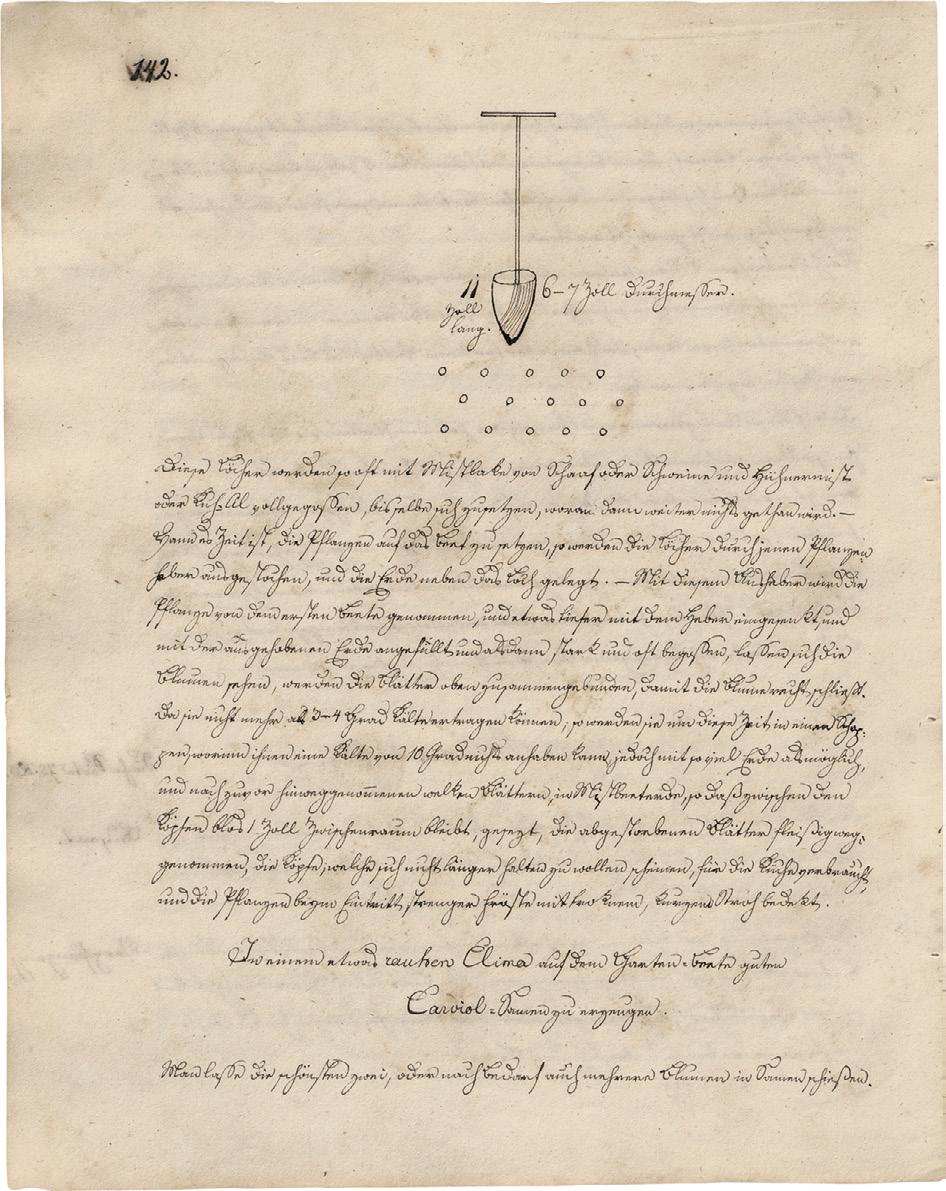 142.
11 6–7 Zoll Durchmesser.
Zoll
lang.
Diese Löcher werden so oft mit Mistlake von Schaaf oder Schweine und Hühnermist
oder Küh= vollgegossen, bis selbe sich zusetzen, woran dann weiter nichts gethan wird. –
Wann es Zeit ist, die Pflanzen auf das Beet zu setzen, so werden die Löcher durch jenen Pflanzen=
heber ausgestochen, und die Erde neben das Loch gelegt. – Mit diesem Ausheber wird die
Pflanze von dem ersten Beete genommen, und etwas tiefer mit dem Heber eingesenkt, und
mit der ausgehobenen Erde angefüllt und alsdann stark und oft begossen, lassen sich die
Blumen sehen, werden die Blätter oben zusammengebunden, damit die Blume recht schließt.
Da sie nicht mehr als 3–4 Grad Kälte ertragen können; so werden sie um diese Zeit in einen Schop=
pen, worinn ihnen eine Kälte von 10 Grad nichts anhaben kann, jedoch mit so viel Erde als möglich,
und nach zuvor hinweggenommenen welken Blättern, in Mistbeeterde, so daß zwischen den
Köpfen blos 1 Zoll Zwischenraum bleibt, gesezt, die abgestorbenen Blätter fleißig weg=
genommen, die Köpfe, welche sich nicht länger halten zu wollen scheinen, für die Küche verbraucht,
und die Pflanzen beym Eintritt strenger Fröste mit troknem, kurzem Stroh bedekt.
In einem etwas rauhen Clima auf dem Garten=beete guten
Carviol=Samen zu erzeugen.
Man lasse die schönsten zwei, oder nach Bedarf auch mehrere Blumen in Samen schießen.